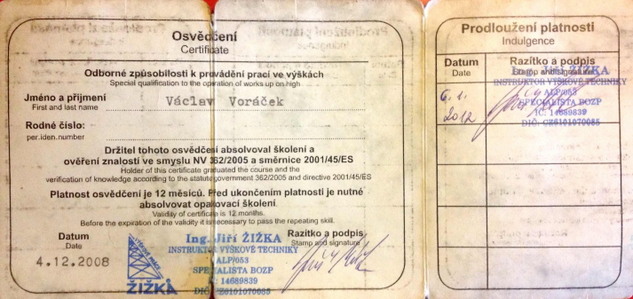 Osvědčení
Certificate
Odborné způsobilosti k provádění prací ve výškách
Special qualification to the operation of works up on high
Jméno a příjmení
First and last name
Václav Voráček
Rodné číslo:
per.iden.number
Držitel tohoto osvědčení absolvoval školení a
ověření znalostí ve smyslu NV 362/2005 a směrnice 2001/45/ES
Holder of this certificate graduated the course and the
verification of knowledge according to the statute government 362/2005 and directive 2001/45/ES
Platnost osvědčení je 12 měsíců. Před ukončením platnosti je nutné
absolvovat opakovací školení.
Validity of certificate is 12 months.
Before the expiration of the validity it is necessary to pass the repeating skill.
Datum
Date
4.12.2008
ŽIŽKA
Razítko a podpis
Stamp and signature
Ing. Jiří ŽIŽKA
INSTRUKTOR VÝŠKOVÉ TECHNIKY
ALP/053
SPECIALISTA BOZP
IČ: 14689839
DIČ: CZ6101070085
Prodloužení platnosti
Indulgence
Datum
Date
Razítko a podpis
Stamp and signature
6. 1.
2012
Ing. Jiří ŽIŽKA
INSTRUKTOR VÝŠKOVÉ TECHNIKY
ALP/053
SPECIALISTA BOZP
IČ: 14689839
DIČ: CZ6101070085